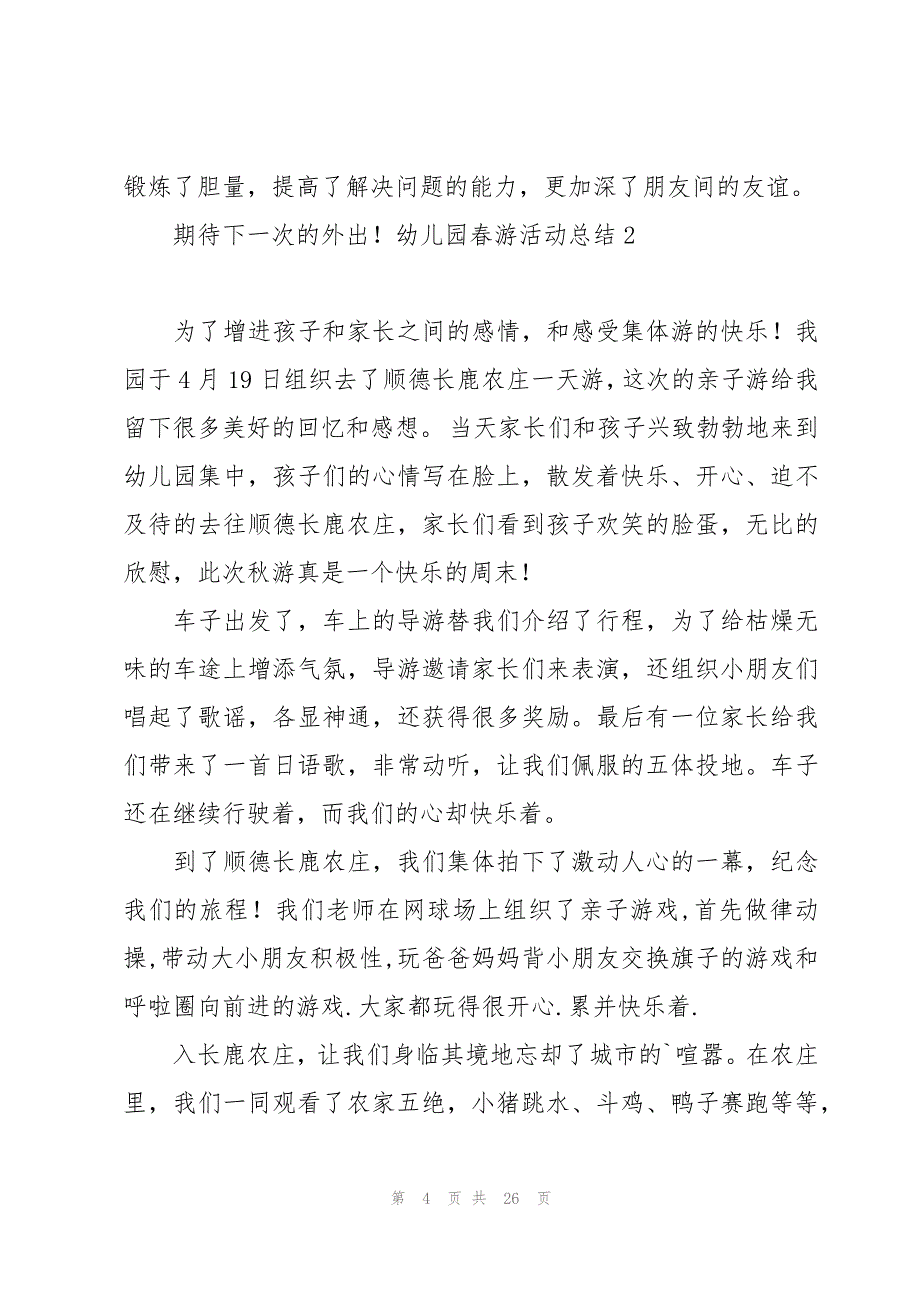 锻炼了胆量，提高了解决问题的能力，更加深了朋友间的友谊。
期待下一次的外出！幼儿园春游活动总结2
为了增进孩子和家长之间的感情，和感受集体游的快乐！我
园于4月19日组织去了顺德长鹿农庄一天游，这次的亲子游给我
留下很多美好的回忆和感想。当天家长们和孩子兴致勃勃地来到
幼儿园集中，孩子们的心情写在脸上，散发着快乐、开心、迫不
及待的去往顺德长鹿农庄，家长们看到孩子欢笑的脸蛋，无比的
欣慰，此次秋游真是一个快乐的周末！
车子出发了，车上的导游替我们介绍了行程，为了给枯燥无
味的车途上增添气氛，导游邀请家长们来表演，还组织小朋友们
唱起了歌谣，各显神通，还获得很多奖励。最后有一位家长给我
们带来了一首日语歌，非常动听，让我们佩服的五体投地。车子
还在继续行驶着，而我们的心却快乐着。
到了顺德长鹿农庄，我们集体拍下了激动人心的一幕，纪念
我们的旅程！我们老师在网球场上组织了亲子游戏,首先做律动
操,带动大小朋友积极性,玩爸爸妈妈背小朋友交换旗子的游戏和
呼啦圈向前进的游戏.大家都玩得很开心.累并快乐着.
入长鹿农庄，让我们身临其境地忘却了城市的`喧嚣。在农庄
里，我们一同观看了农家五绝，小猪跳水、斗鸡、鸭子赛跑等等，
第 4 页 共 26 页